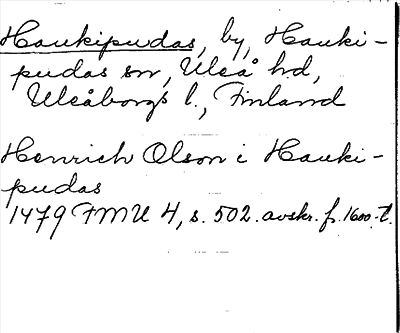 Haukipudas, by, Hauki-
pudas sn, Uleå hd,
Uleåborgs l., Finland
Henrich Olson i Hauki-
pudas
1479 FMU 4, s. 502. avskr. fr. 1600-t.